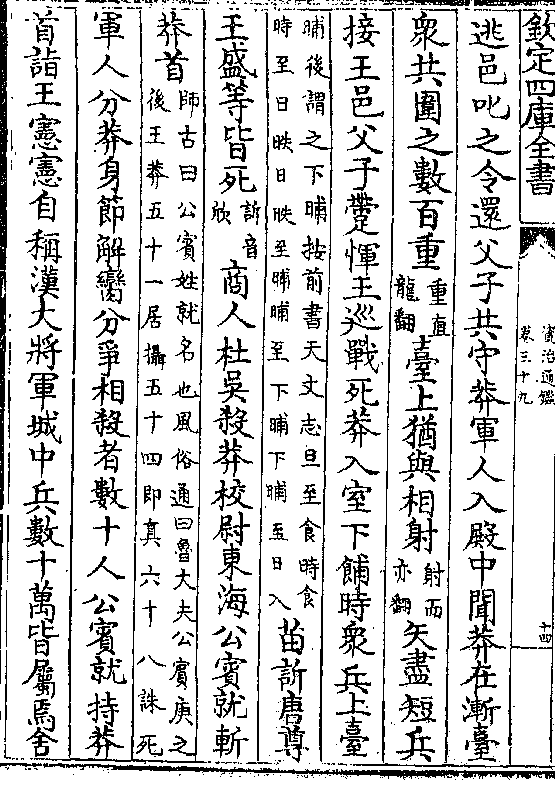 欽定四庫全書
資治通鑑
卷三十九
十四
逃邑叱之令還父子共守莽軍人入殿中聞莽在漸臺
衆共圍之數百重
重直
龍翻
臺上猶與相射
射而
亦翻
矢盡短兵
接王邑父子䠠惲王巡戰死莽入室下餔時衆兵上臺
晡後謂之下晡按前書天文志旦至食時食
時至日昳日昳至晡晡至下晡下晡至日入
苗訢唐尊
王盛等皆死
訢音
欣
商人杜吳殺莽校尉東海公賓就斬
莽首
師古曰公賓姓就名也風俗通曰魯大夫公賓庚之
後王莽五十一居攝五十四即真六十八誅死
軍人分莽身節解臠分爭相殺者數十人公賓就持莽
首詣王憲憲自稱漢大將軍城中兵數十萬皆屬焉舍